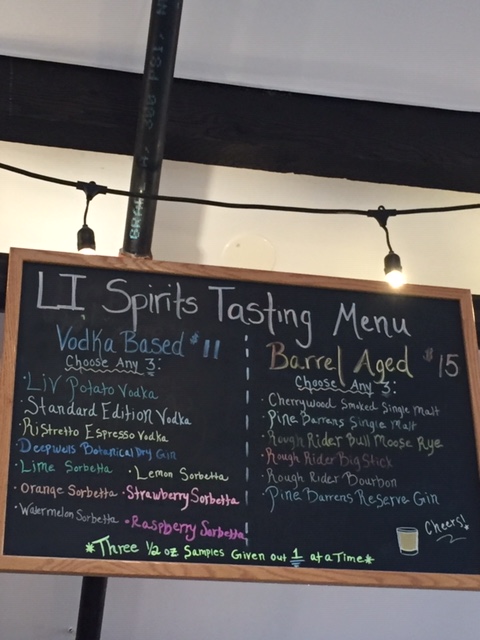 LI Spirits Tasting Menu
Vodka Based $11
Choose Any 3:
·LiV Potato Vodka
·Standard Edition Vodka
·Ristretto Espresso Vodka
·Deepwells Botanical Dry Gin
·Lime Sorbetta ·Lemon Sorbetta
·Orange Sorbetta ·Strawberry Sorbetta
·Watermelon Sorbetta ·Raspberry Sorbetta
Barrel Aged $15
Choose Any 3:
·Cherrywood Smoked Single Malt
·Pine Barrens Single Malt
·Rough Rider Bull Moose Rye
·Rough Rider Big Stick
·Rough Rider Bourbon
·Pine Barrens Reserve Gin
Cheers!
*Three 1/2 oz Samples Given out 1 at a Time*